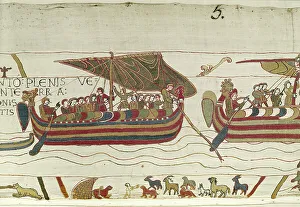 5.
NTO: PLENIS VE
NTE RRA:
ONIS
TIS